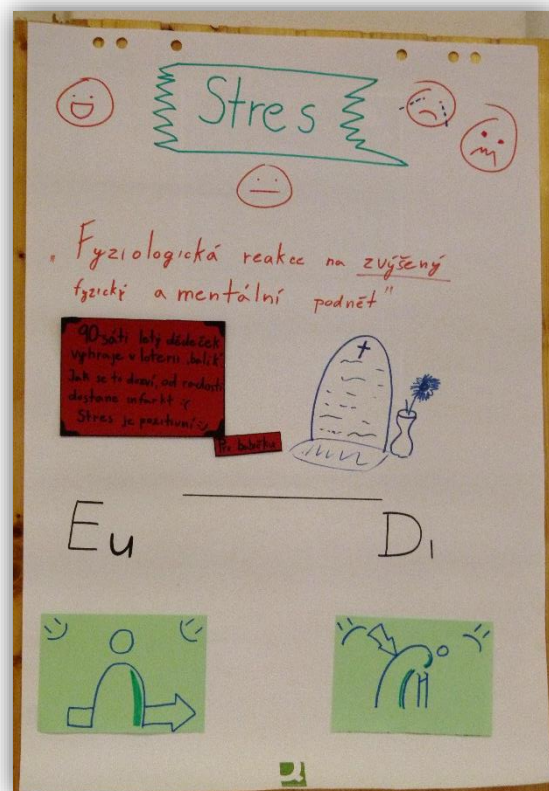 Stres
„Fyziologická reakce na zvýšený
fyzický a mentální podnět"
90sáti letý dědeček
vyhraje v loterii „balík".
Jak se to dozví, od radosti
dostane infarkt :(
Stres je pozitivní :)
Pro babičku
Eu
Di